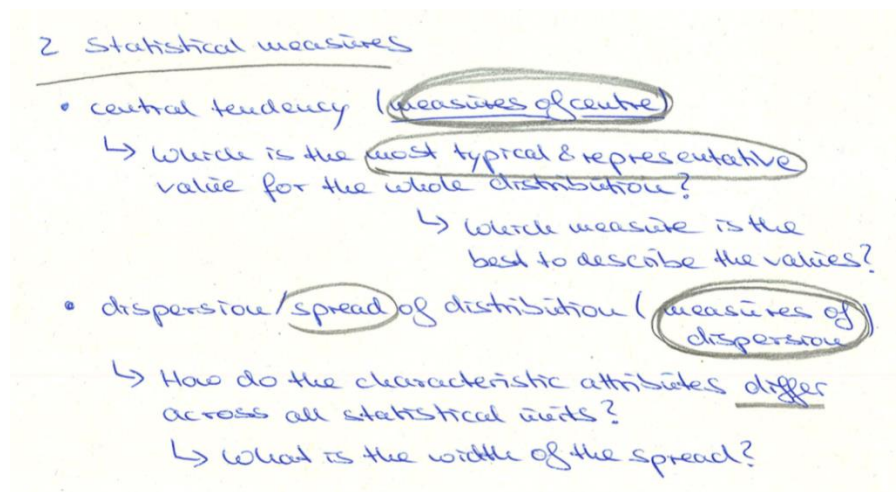 2 Statistical measures
• central tendency (measures of centre)
↳ Which is the most typical & representative
value for the whole distribution?
↳ Which measure is the
best to describe the values?
• dispersion/spread of distribution (measures of
dispersion)
↳ How do the characteristic attributes differ
across all statistical units?
↳ What is the width of the spread?